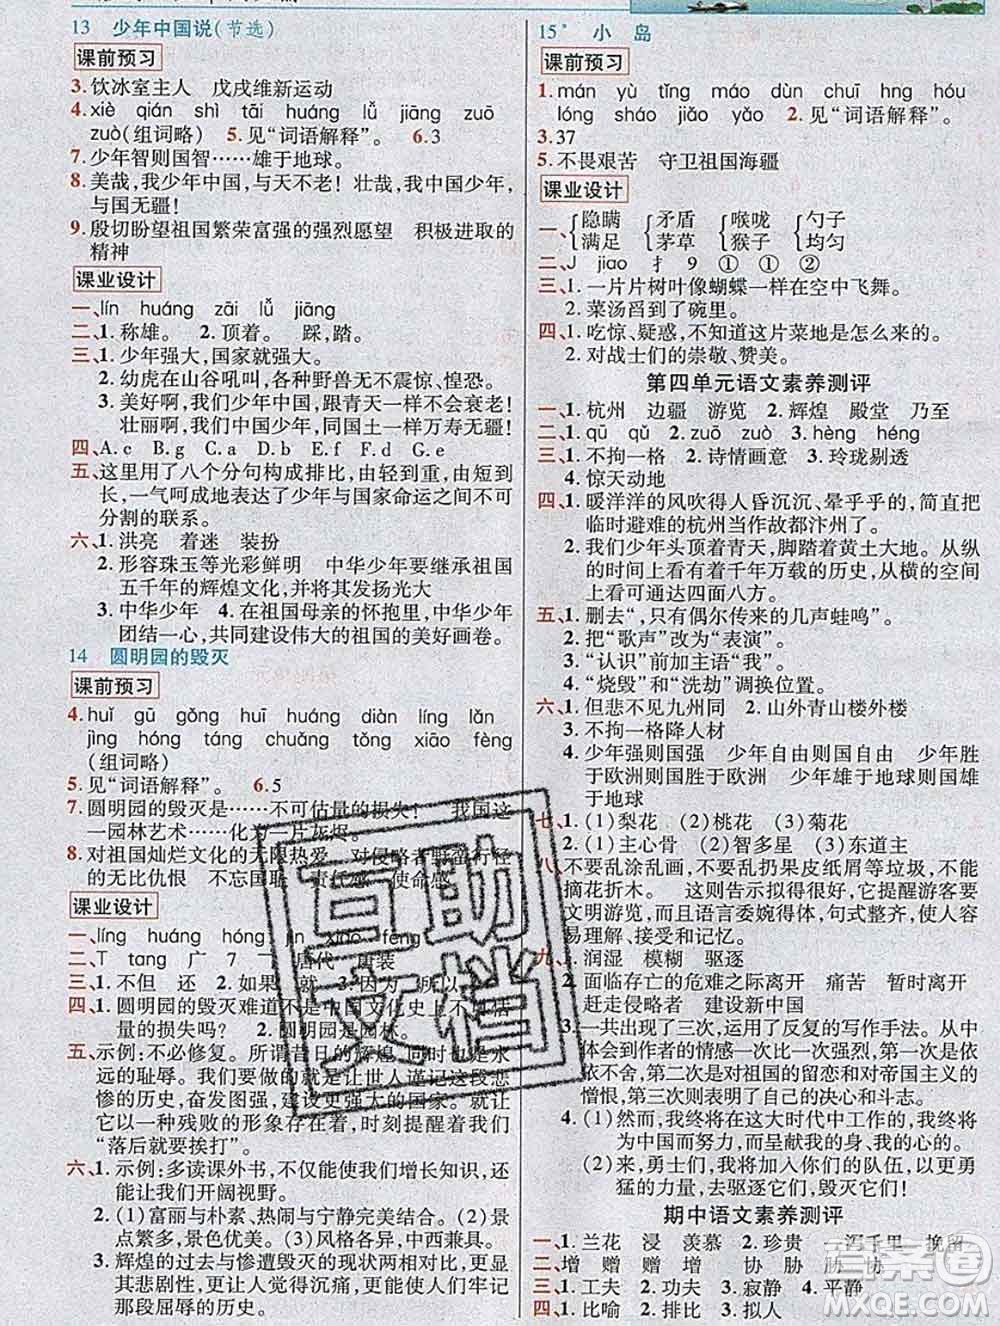 13 少年中国说(节选)
课前预习
3.饮冰室主人 戊戌维新运动
4.xiè qián shì tāi huáng lǚ jiāng zuō
zuò(组词略) 5.见“词语解释”。 6.3
7.少年智则国智……雄于地球。
8.美哉,我少年中国,与天不老!壮哉,我中国少年,
与国无疆!
9.殷切盼望祖国繁荣富强的强烈愿望 积极进取的
精神
课业设计
一、lín huáng zāi lǚ jiāng
二、1.称雄。 2.顶着。 踩,踏。
三、1.少年强大,国家就强大。
2.幼虎在山谷吼叫,各种野兽无不震惊、惶恐。
3.美好啊,我们少年中国,跟青天一样永不衰老!
壮丽啊,我们少年中国,同国土一样万寿无疆!
四、A.c B.g C.a D.f E.d F.b G.e
五、这里用了八个分句构成排比,由轻到重,由短到
长,一气呵成地表达了少年与国家命运之间不可
分割的联系。
六、1.洪亮 着迷 装扮
2.形容珠玉等光彩鲜明 中华少年要继承祖国
五千年的辉煌文化,并将其发扬光大
3.中华少年 4.在祖国母亲的怀抱里,中华少年
团结一心,共同建设伟大的祖国的美好画卷。
14 圆明园的毁灭
课前预习
4.huǐ gū gǒng huī huáng diàn líng lǎn
jìng hóng táng chuǎng tǒng xiāo fèng
(组词略)
5.见“词语解释”。 6.5
7.圆明园的毁灭是……不可估量的损失! 我国这
一园林艺术……化为一片灰烬。
8.对祖国灿烂文化的无限热爱 对侵略者野蛮行径
的无比仇恨 不忘国耻 责任感 使命感
课业设计
一、líng huáng hóng jìn xiāo fèng
二、T tang 广 7 唐代 唐装
三、1.不但 还 2.如果 就 3.因为 所以
四、1.圆明园的毁灭难道不是中国文化史上不可估
量的损失吗? 2.圆明园是园林。
五、示例:不必修复。所谓昔日的辉煌 同时也是永
远的耻辱。我觉得这就是让世人谨记这段悲
惨的历史,奋发图强,建设更强大的国家。就让
这个残败的形象存在着,时刻提醒我们:
“落后就要挨打”。
六、1.示例:多读课外书,不仅能使我们增长知识,还
能使我们开阔视野。
2.(1)富丽与朴素、热闹与宁静完美结合。(2)景
点繁多,景色优美。(3)风格各异,中西兼具。
3.辉煌的过去与惨遭毁灭的现状两相对比,反差
更强烈,更让人觉得沉痛,更能让人永远记住
那段屈辱的历史。
15* 小岛
课前预习
1.mán yù tǐng máo dùn chuī hng hóu
lóng sháo jiǎo yǎo 2.见“词语解释”。
3.37
5.不畏艰苦 守卫祖国海疆
课业设计
一、{隐瞒 满足 {矛盾 茅草 {喉咙 猴子 {勺子 均匀
二、J jiao 扌 9 ① ① ②
三、1.一片片树叶像蝴蝶一样在空中飞舞。
2.菜汤舀到了碗里。
四、1.吃惊、疑惑,不知道这片菜地是怎么来的。
2.对战士们的崇敬、赞美。
第四单元语文素养测评
一、1.杭州 边疆 游览 2.辉煌 殿堂 乃至
二、1.qū qǔ 2.zuō zuò 3.hèng héng
三、1.不拘一格 2.诗情画意 3.玲珑剔透
4.惊天动地
四、1.暖洋洋的风吹得人昏沉沉、晕乎乎的,简直把
临时避难的杭州当作故都汴州了。
2.我们少年头顶着青天,脚踏着黄土大地。从纵
的时间看有着千年万载的历史,从横的空间
上看可通达四面八方。
五、1.删去“,只有偶尔传来的几声蛙鸣”。
2.把“歌声”改为“表演”。
3.“认识”前加主语“我”。
4.“烧毁”和“洗劫”调换位置。
六、1.但悲不见九州同 2.山外青山楼外楼
3.不拘一格降人材
4.少年强则国强 少年自由则国自由 少年胜
于欧洲则国胜于欧洲 少年雄于地球则国雄
于地球
七、1.(1)梨花 (2)桃花 (3)菊花
2.(1)主心骨 (2)智多星 (3)东道主
八、不要乱涂乱画,不要乱扔果皮纸屑等垃圾,不要
摘花折木。 这则告示拟得很好,它提醒游客要
文明游览,而且语言委婉得体,句式整齐,使人容
易阅读、接受和记忆。
九、1.润湿 模糊 驱逐
2.面临存亡的危难之际离开 痛苦 暂时离开
赶走侵略者 建设新中国
3.一共出现了三次,运用了反复的写作手法。从中
体会到作者的情感一次比一次强烈,第一次是依
依不舍,第二次是对祖国的留恋和对帝国主义的
憎恨,第三次则表明了作者的决心和斗志。
4.(1)然而,我终将在这大时代中工作的,我终将
为中国而努力,而呈献我的身、我的心。
(2)来,勇士们,我将加入你们的队伍,以更勇
猛的力量,去驱逐它们,毁灭它们!
期中语文素养测评
一、1.兰花 浸 羡慕 2.珍贵 浑千里 挽留
二、增 赠 增 协 胁 胁 协
三、1.工夫 2.功夫 3.寂静 4.平静
四、1.比喻 2.排比 3.拟人
互助
文档
答案圈
MXQE.COM